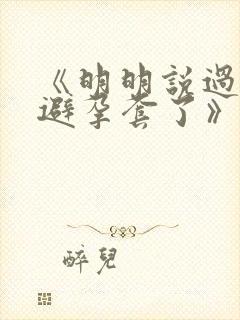 《明明說過
避孕套了》
醉兒